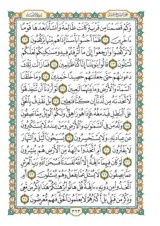 وَكَمْ قَصَمْنَا مِن قَرْيَةٍ كَانَتْ ظَالِمَةً وَأَنشَأْنَا بَعْدَهَا قَوْمًا
ءَاخَرِينَ ١١ فَلَمَّآ أَحَسُّواْ بَأْسَنَآ إِذَا هُم مِّنْهَا يَرْكُضُونَ ١٢
لَا تَرْكُضُواْ وَٱرْجِعُوٓاْ إِلَىٰ مَآ أُتْرِفْتُمْ فِيهِ وَمَسَٰكِنِكُمْ لَعَلَّكُمْ
تُسْـَٔلُونَ ١٣ قَالُواْ يَٰوَيْلَنَآ إِنَّا كُنَّا ظَٰلِمِينَ ١٤ فَمَا زَالَت تِّلْكَ
دَعْوَىٰهُمْ حَتَّىٰ جَعَلْنَٰهُمْ حَصِيدًا خَٰمِدِينَ ١٥ وَمَا خَلَقْنَا
ٱلسَّمَآءَ وَٱلْأَرْضَ وَمَا بَيْنَهُمَا لَٰعِبِينَ ١٦ لَوْ أَرَدْنَآ أَن نَّتَّخِذَ لَهْوًا
لَّٱتَّخَذْنَٰهُ مِن لَّدُنَّآ إِن كُنَّا فَٰعِلِينَ ١٧ بَلْ نَقْذِفُ بِٱلْحَقِّ عَلَى
ٱلْبَٰطِلِ فَيَدْمَغُهُۥ فَإِذَا هُوَ زَاهِقٌ وَلَكُمُ ٱلْوَيْلُ مِمَّا تَصِفُونَ ١٨
وَلَهُۥ مَن فِى ٱلسَّمَٰوَٰتِ وَٱلْأَرْضِ وَمَنْ عِندَهُۥ لَا يَسْتَكْبِرُونَ
عَنْ عِبَادَتِهِۦ وَلَا يَسْتَحْسِرُونَ ١٩ يُسَبِّحُونَ ٱلَّيْلَ وَٱلنَّهَارَ
لَا يَفْتُرُونَ ٢٠ أَمِ ٱتَّخَذُوٓاْ ءَالِهَةً مِّنَ ٱلْأَرْضِ هُمْ يُنشِرُونَ ٢١
لَوْ كَانَ فِيهِمَآ ءَالِهَةٌ إِلَّا ٱللَّهُ لَفَسَدَتَا فَسُبْحَٰنَ ٱللَّهِ رَبِّ ٱلْعَرْشِ
عَمَّا يَصِفُونَ ٢٢ لَا يُسْـَٔلُ عَمَّا يَفْعَلُ وَهُمْ يُسْـَٔلُونَ ٢٣ أَمِ
ٱتَّخَذُواْ مِن دُونِهِۦٓ ءَالِهَةً قُلْ هَاتُواْ بُرْهَٰنَكُمْ هَٰذَا ذِكْرُ مَن مَّعِىَ وَذِكْرُ
مَن قَبْلِى بَلْ أَكْثَرُهُمْ لَا يَعْلَمُونَ ٱلْحَقَّ فَهُم مُّعْرِضُونَ ٢٤
٣٢٣